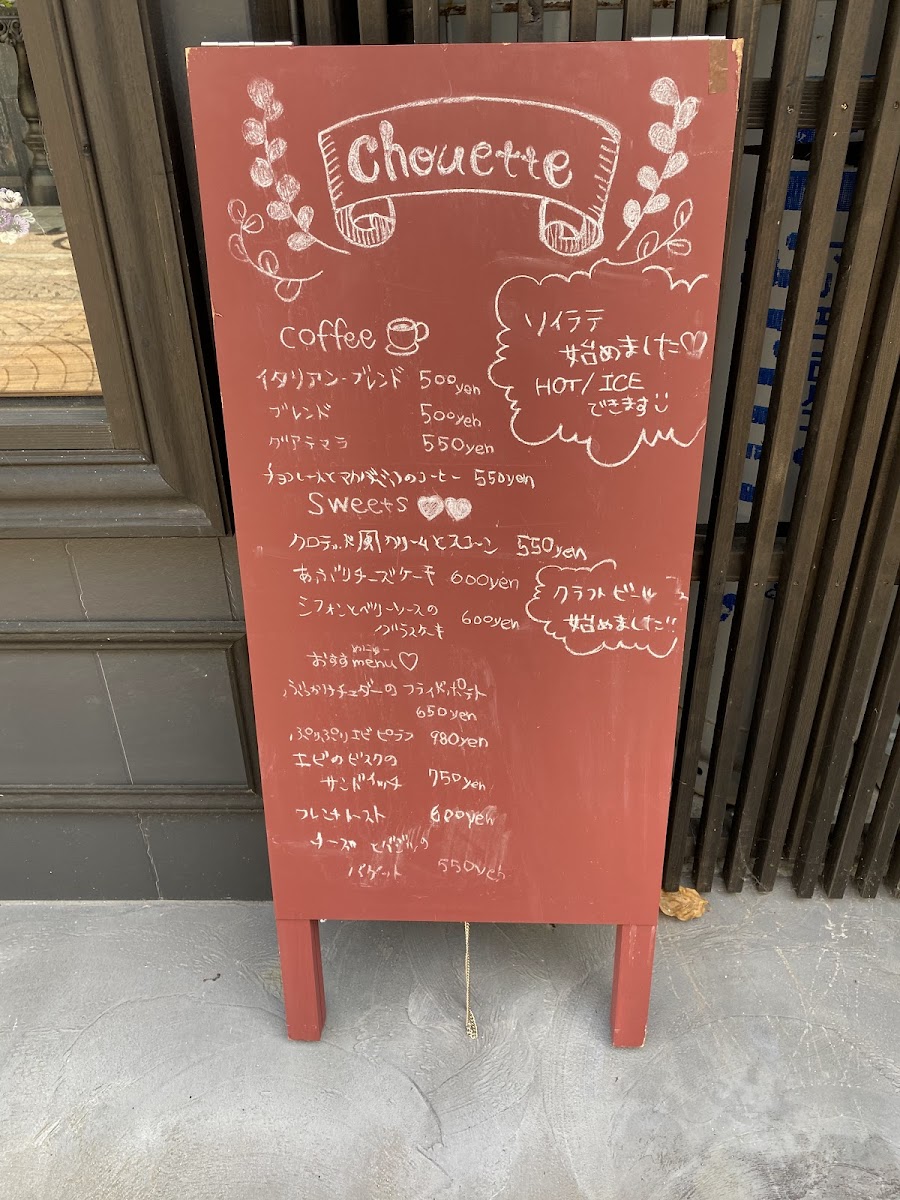 Chouette
coffee
イタリアン・ブレンド 500yen
ブレンド 500yen
グアテマラ 550yen
チョコレートとマカダミアのコーヒー 550yen
ソイラテ
始めました♡
HOT/ICE
できます
Sweets
クロテッド風クリームとスコーン 550yen
あぶりチーズケーキ 600yen
シフォンとベリーソースの
600yen
クラフトビール
始めました!!
めにゅー
おすすmenu♡
ぶっかけチェダーのフライドポテト
650yen
ぷりぷりエビピラフ 980yen
エビのビスクの
サンドイッチ 750yen
フレンチトースト 600yen
チーズとバジルの
バゲット 550yen